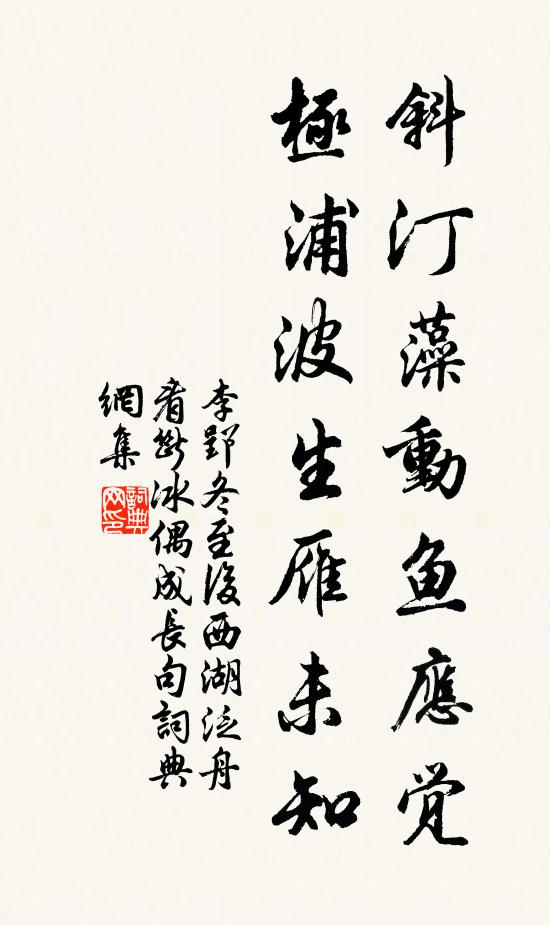 斜汀藻動鱼應觉
極浦波生雁未知
李郢冬至後西湖泛舟
看断冰偶成長句詞典
網集
詞典
网印